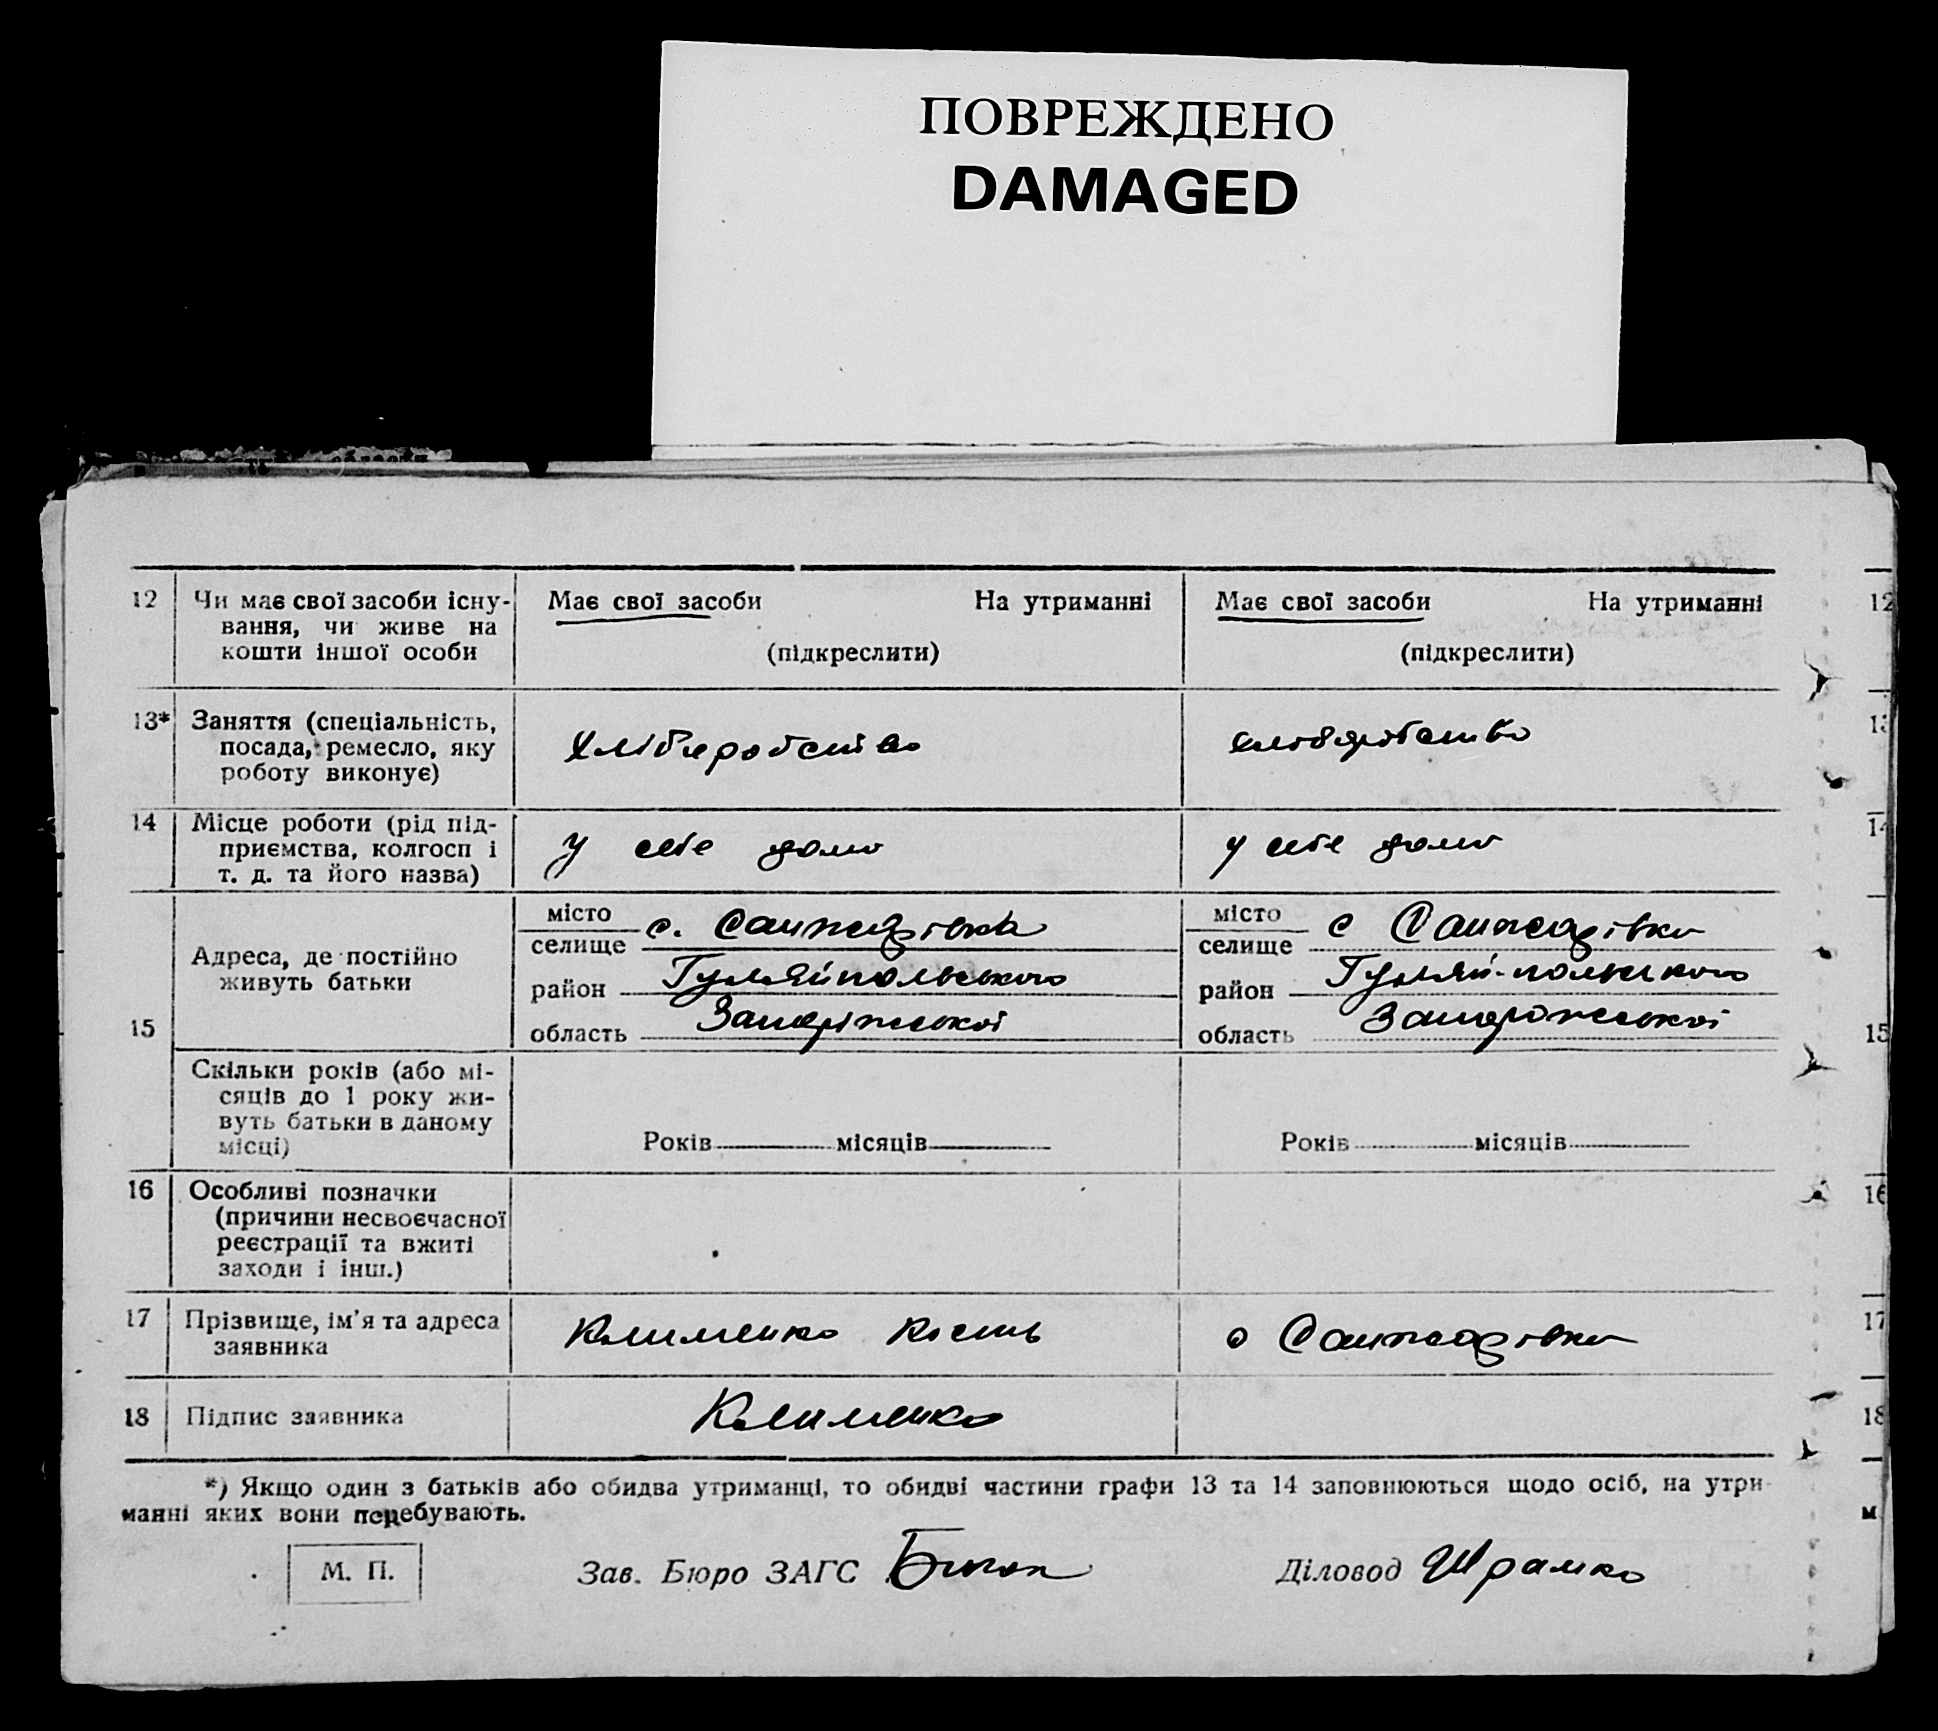 ПОВРЕЖДЕНО
DAMAGED
12 Чи має свої засоби існу-
вання, чи живе на
кошти іншої особи
Має свої засоби На утриманні
(підкреслити)
Має свої засоби На утриманні
(підкреслити)
12
13* Заняття (спеціальність,
посада, ремесло, яку
роботу виконує)
хлібиробство
хлібаробство
13
14 Місце роботи (рід під-
приємства, колгосп і
т. д. та його назва)
у себе дома
у себе дома
14
15 Адреса, де постійно
живуть батьки
місто
селище с. Санжарівка
район Гуляйпольського
область Запоріжської
місто
селище с Санжарівка
район Гуляй-польського
область Запоріжської
15
Скільки років (або мі-
сяців до 1 року жи-
вуть батьки в даному
місці)
Років місяців
Років місяців
16 Особливі позначки
(причини несвоєчасної
реєстрації та вжиті
заходи і інш.)
16
17 Прізвище, ім'я та адреса
заявника
Клименко Кость
с Санжарівка
17
18 Підпис заявника
Клименко
18
*) Якщо один з батьків або обидва утриманці, то обидві частини графи 13 та 14 заповнюються щодо осіб, на утри-
манні яких вони перебувають.
м
М. П.
Зав. Бюро ЗАГС
Діловод Шрамко